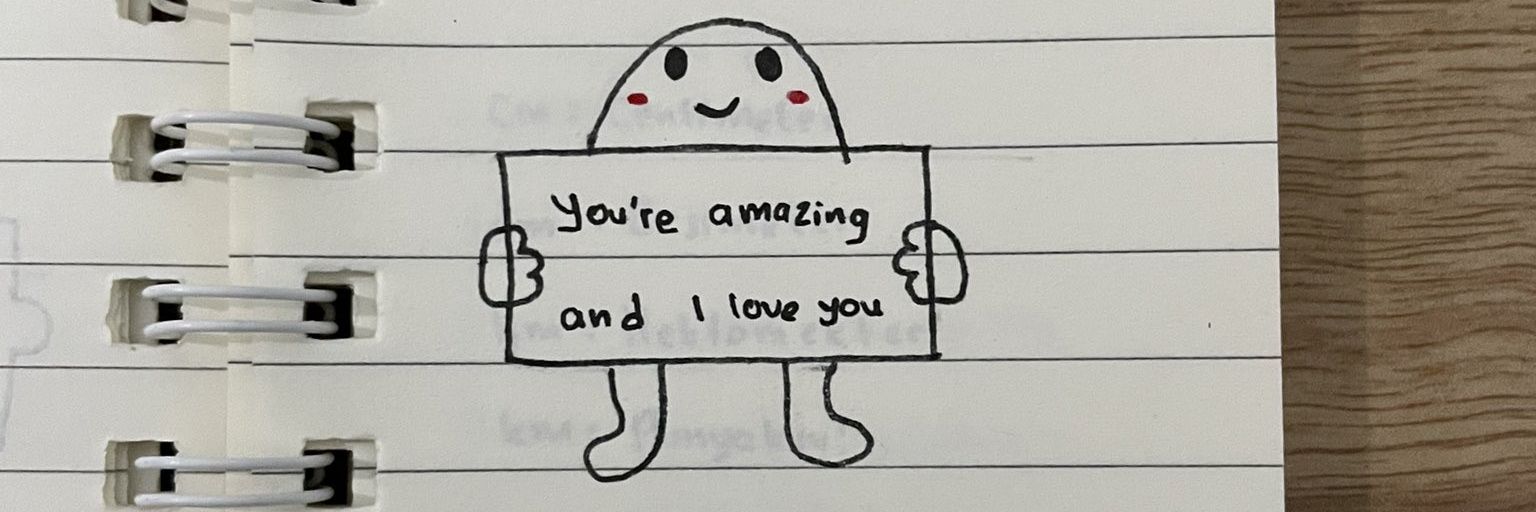 You're amazing
and I love you